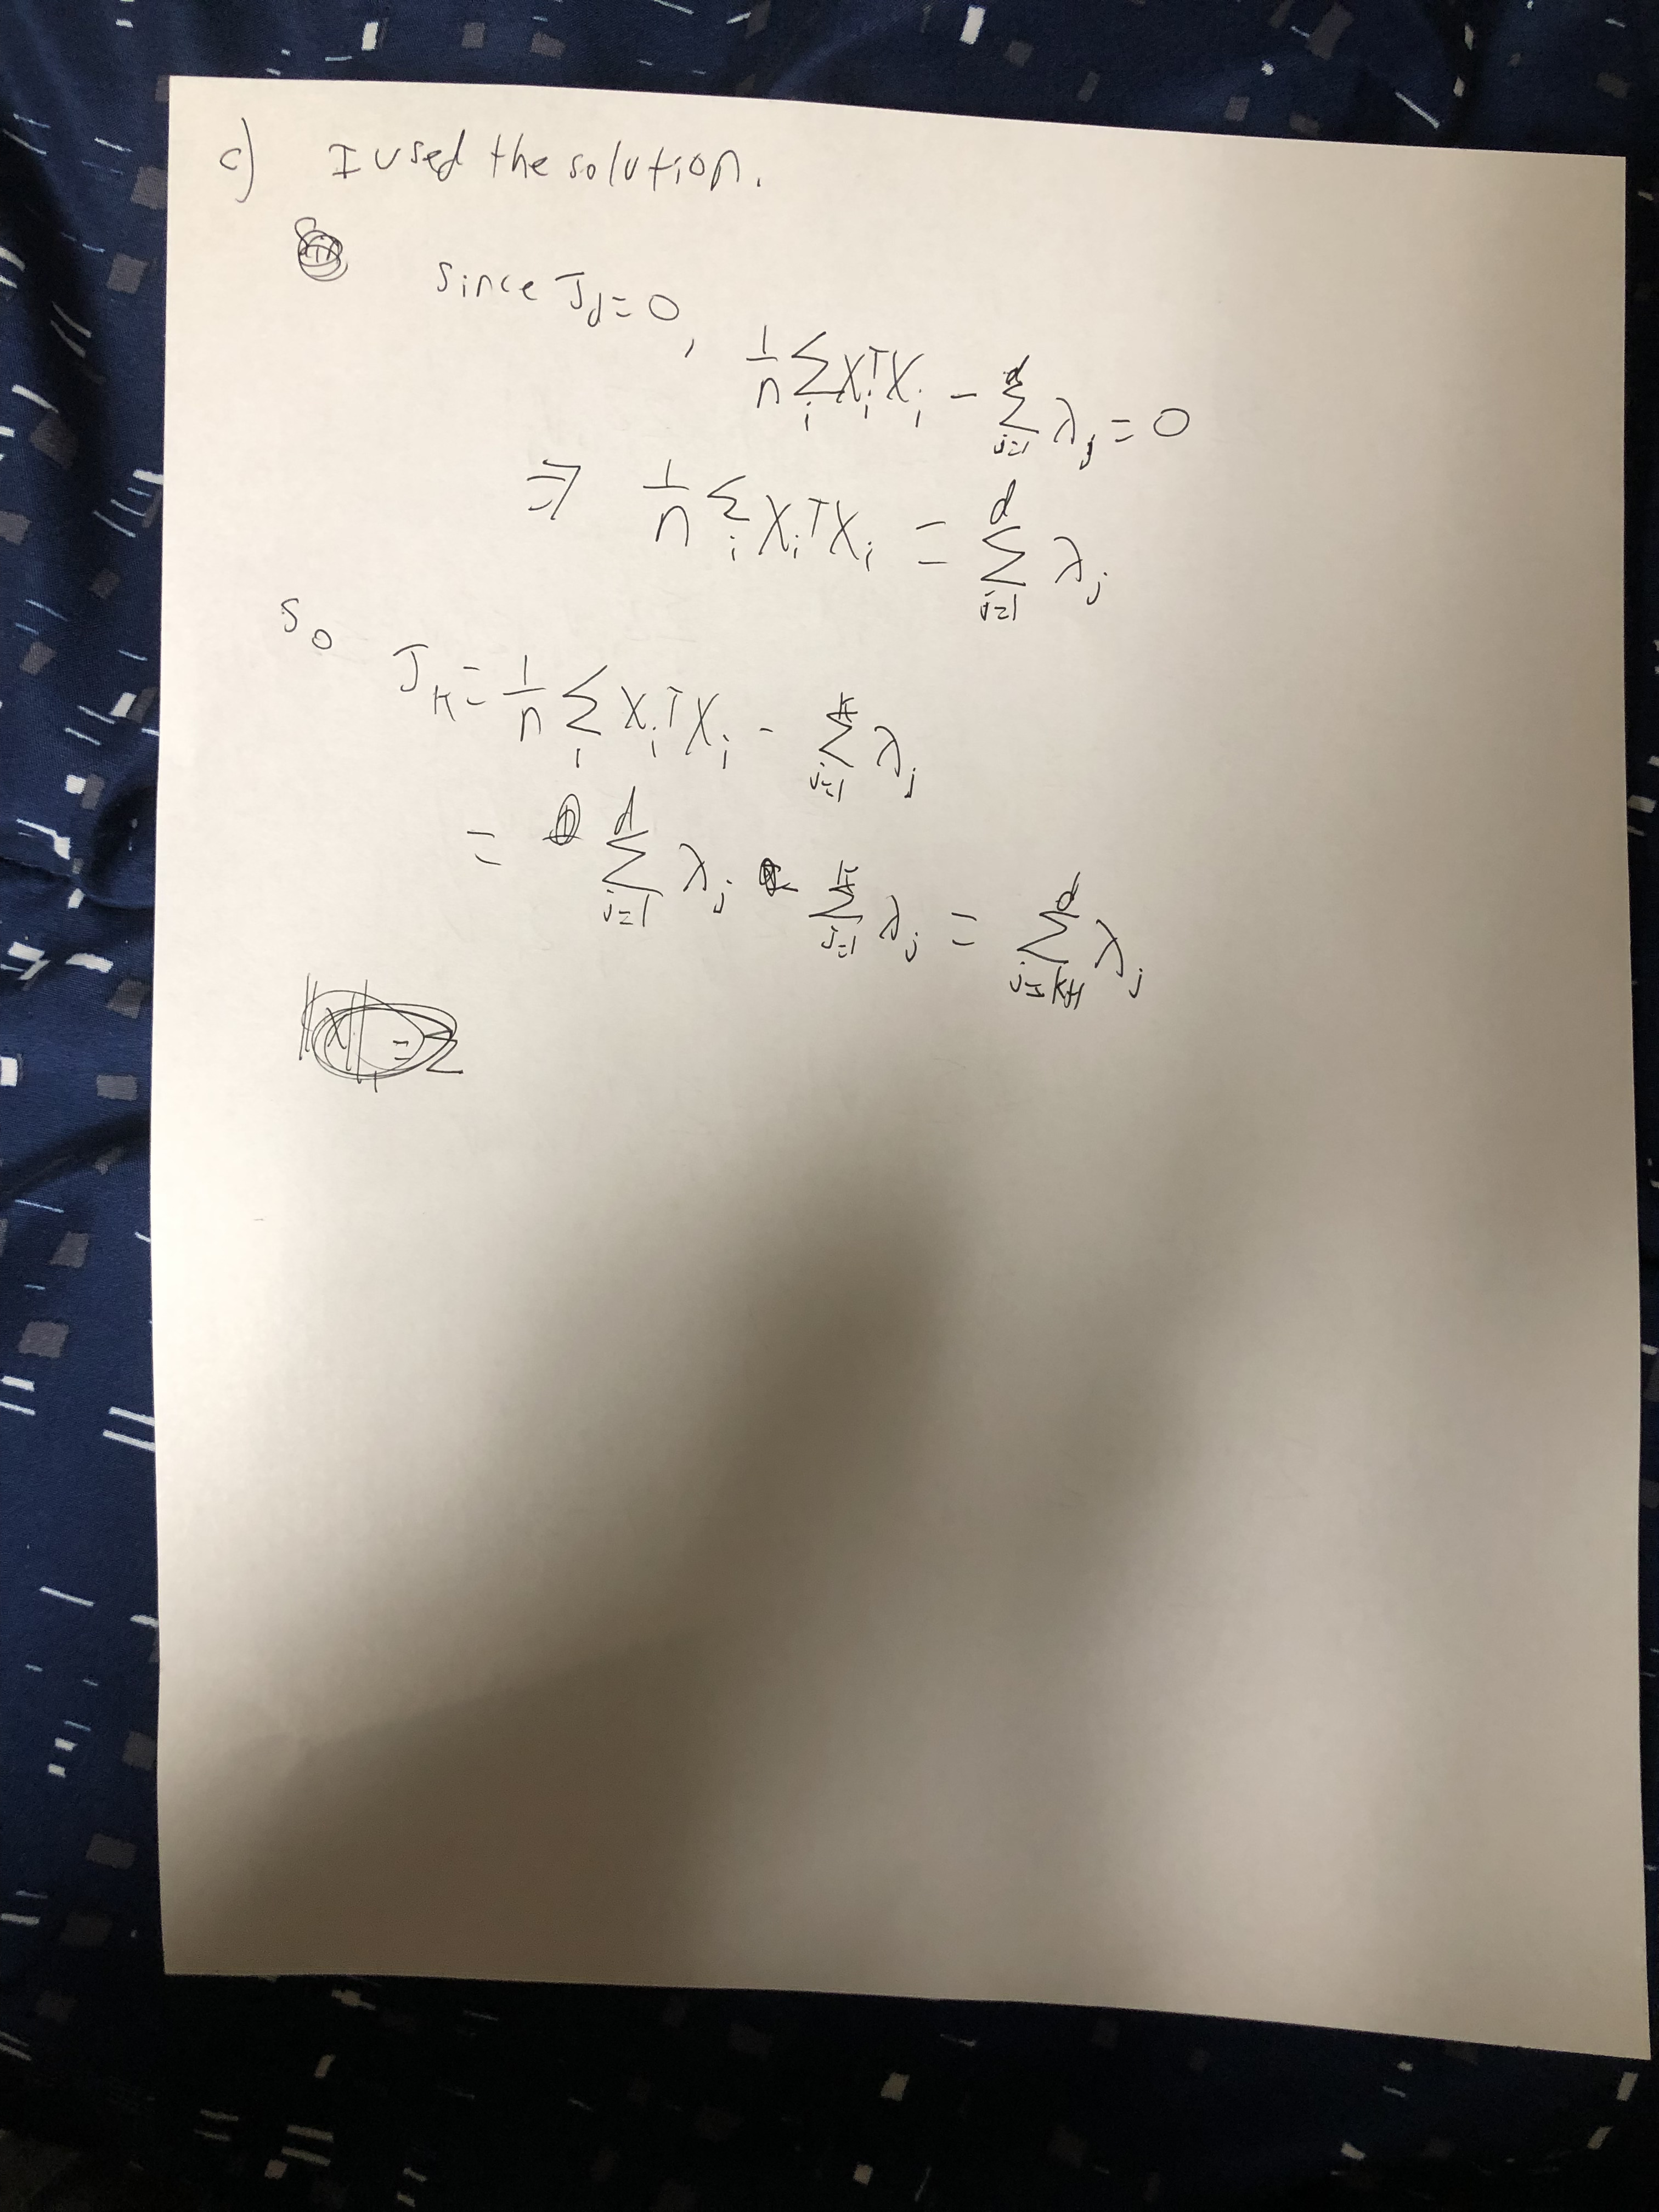 c) I used the solution.
since J_d = 0, 1/n ∑_i x_i^T x_i - ∑_{j=1}^d λ_j = 0
⇒ 1/n ∑_i x_i^T x_i = ∑_{j=1}^d λ_j
so J_k = 1/n ∑_i x_i^T x_i - ∑_{j=1}^k λ_j
= ∑_{j=1}^d λ_j - ∑_{j=1}^k λ_j = ∑_{j=k+1}^d λ_j